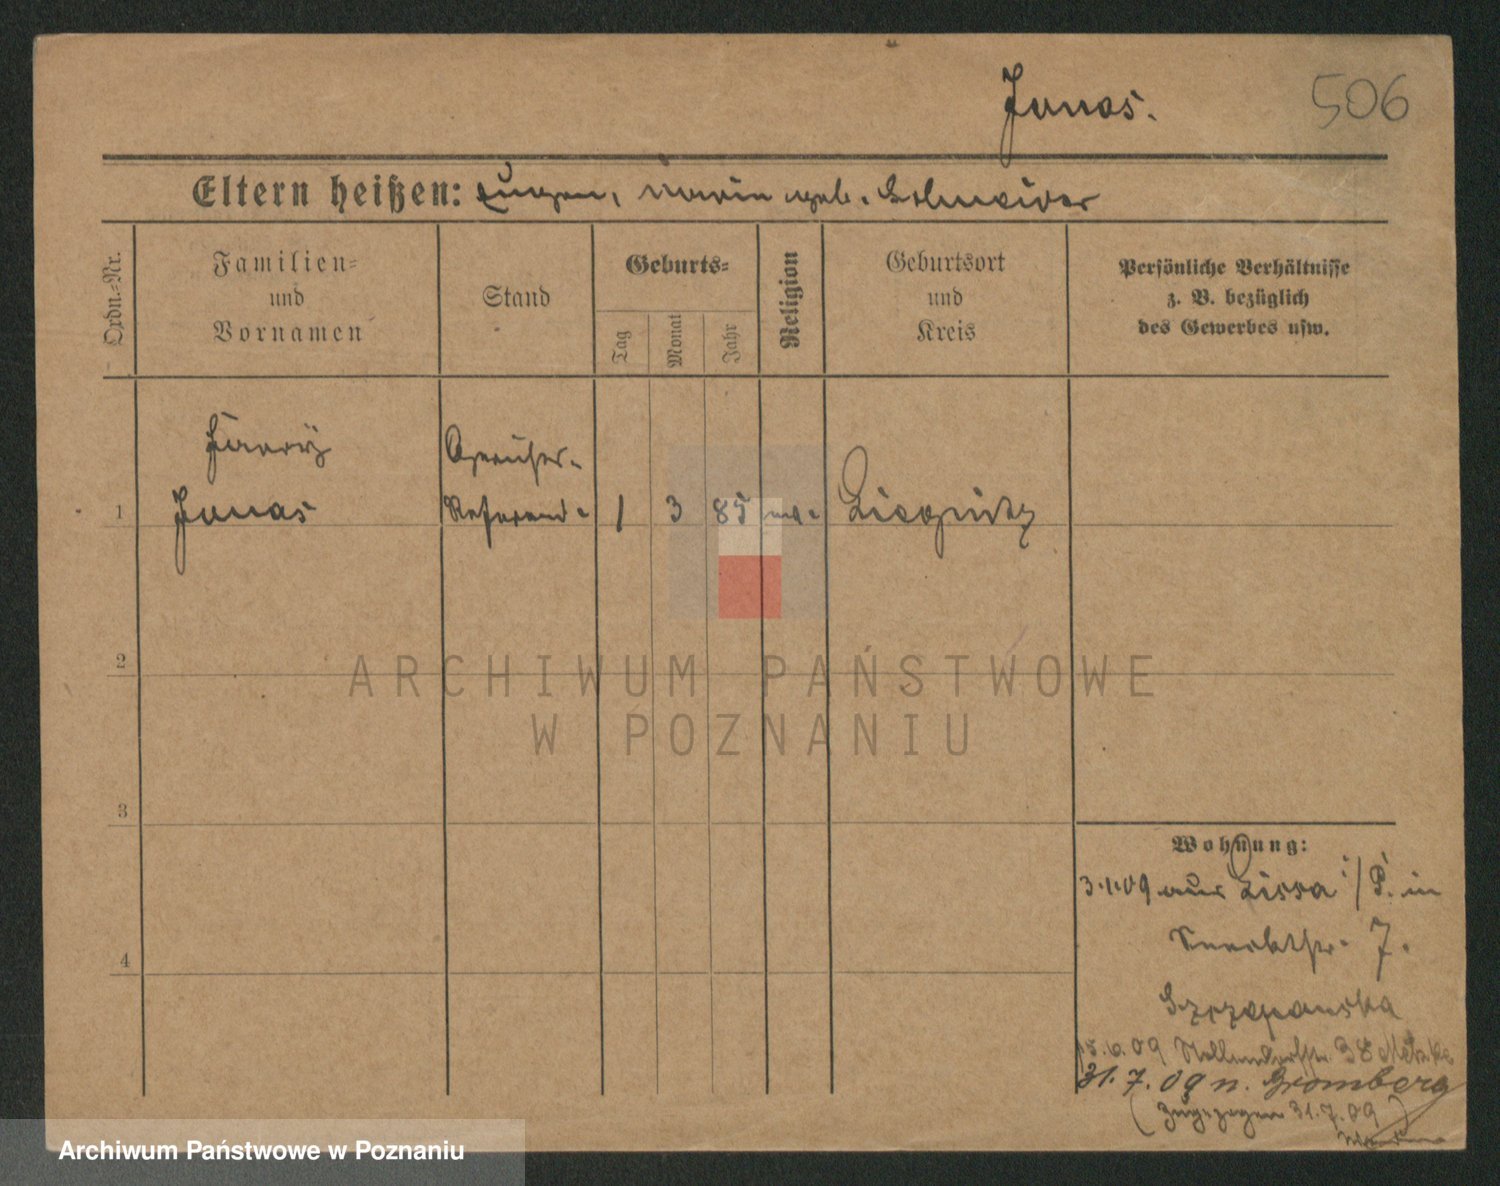 Jonas.
506
Eltern heißen: Eugen, Marie geb. Schneider
Ordn.-Nr.
Familien-
und
Vornamen
Stand
Geburts-
Tag
Monat
Jahr
Religion
Geburtsort
und
Kreis
Persönliche Verhältnisse
z. B. bezüglich
des Gewerbes usw.
Harry
Jonas
Referend-
1
1
3
85
Liegnitz
2
3
4
Wohnung:
3.1.09 aus Lissa i/P. in
7.
Szczepanska
15.6.09 Nollendorfstr. 38
31.7.09 n. Bromberg
(Zugezogen 31.7.09)
ARCHIWUM PAŃSTWOWE
W POZNANIU
Archiwum Państwowe w Poznaniu